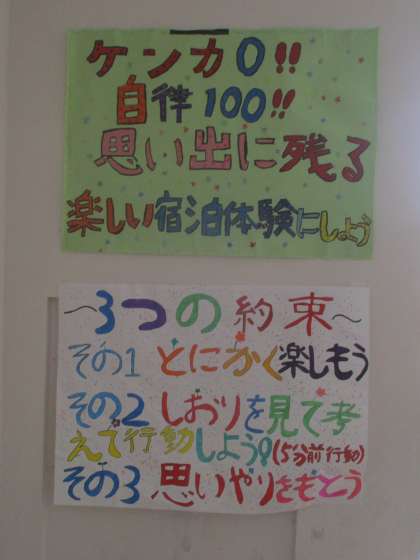 ケンカ0!!
自律100!!
思い出に残る
楽しい宿泊体験にしよう
～3つの約束～
その1 とにかく楽しもう
その2 しおりを見て考
えて行動しよう!(5分前行動)
その3 思いやりをもとう